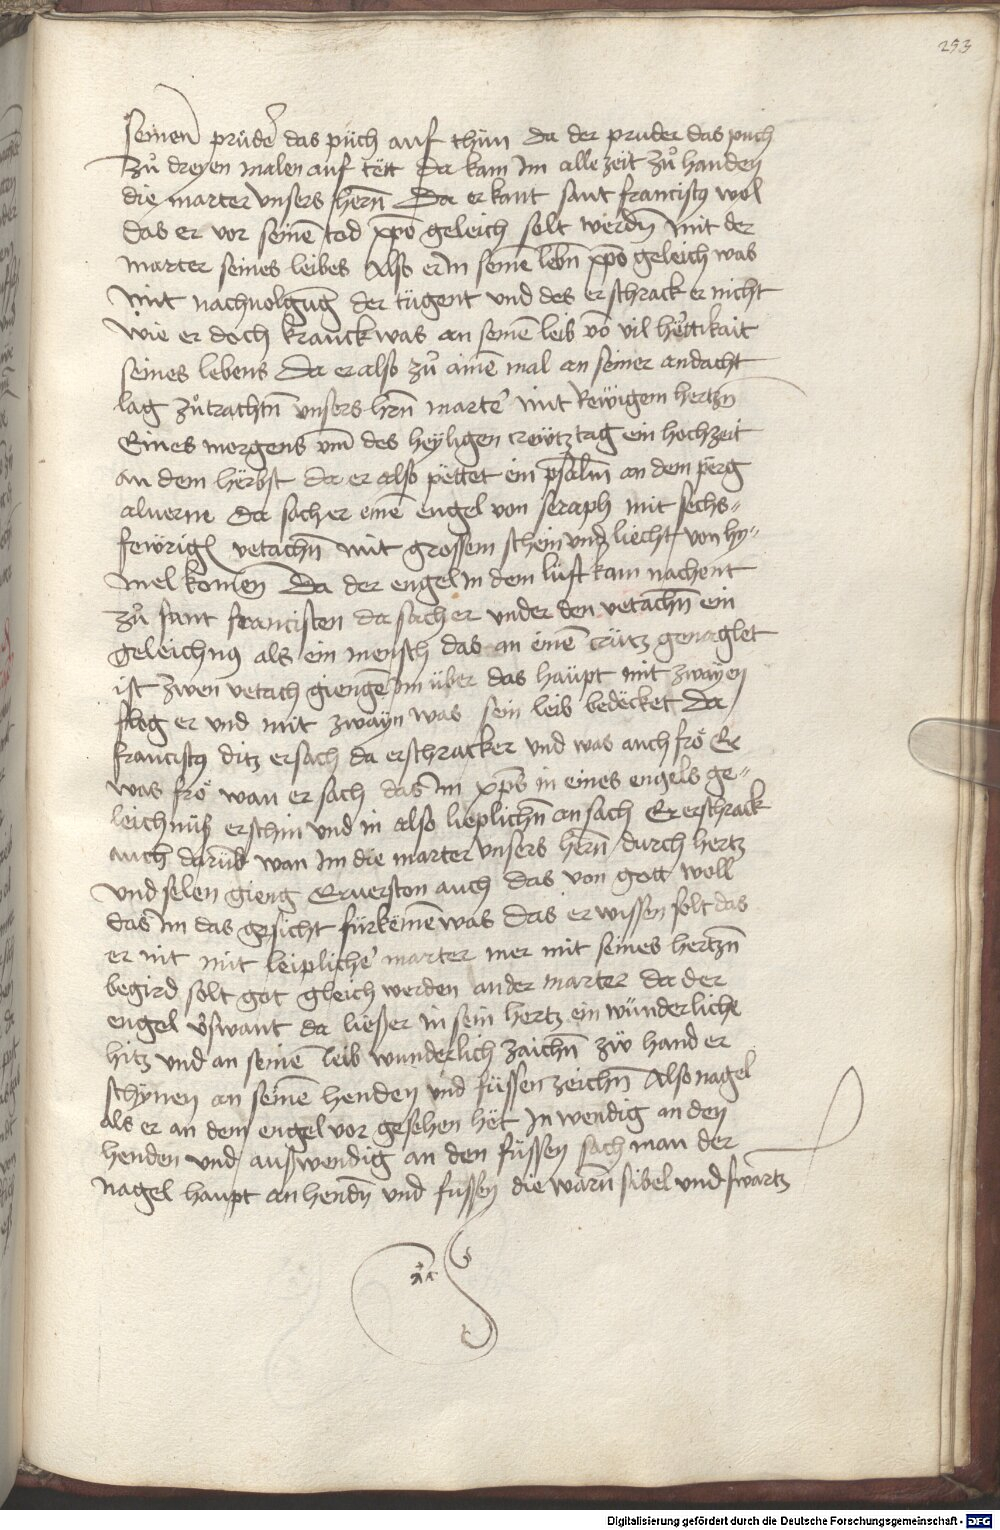 253
seinen prüder das püch auf thün da der pruder das puch
zů dreyen malen auf tett Da kam Im alle zeit zů handen
die marter vnsers hern̄ Da er kant sant franciscꝯ wol
das er vor seinē tod xp̄o geleich solt werdn̄ mit der
marter seines leibes Also er In seinē lebn̄ xp̄o geleich was
mit nachuolgūg der tügent vnd des erschrack er nicht
wie er doch kranck was an seinē leib vō vil hertikait
seines lebens Da er also zů ainē mal an seiner andacht
lag zůtrachtn̄ vnsers hrn̄ marte᷑ mit Rewigem hertzn̄
Eines morgens vm̄ des heyligen crewtz tag ein hochzeit
an dem herbst da er also pettet ein psalm̄ an dem perg
aluerne Da sach er einē engel von seraph mit sechs-
fewrigē vetachn̄ mit grossem schein vnd liecht von hy-
mel komen̄ Da der engel In dem lüft kam nachent
zů sant francisten da sach er vnder den vetachn̄ ein
geleichnꝯ als ein mensch das an einē crütz genaglet
ist zwen vetach giengē Im über das haüpt mit zwayen
flog er vnd mit zwayn was sein leib bedecket Da
franciscꝯ ditz ersach da erschracker vnd was auch fro Er
was fro wan er sach das Im xp̄s in eines engels ge-
leichnüß erschin vnd in also lieplichn̄ an sach Er erschrack
auch darūb wan Im die marter vnsers hern̄ durch hertz
vnd selen gieng Er verston auch das von gott woll
das Im das gesicht fürkömē was das er wissen solt das
er nit mit leipliche᷑ marter mer mit seines hertzn̄
begird solt got gleich werden an der marter da der
engel v᷑swant da ließ er in sein hertz ein wunderliche
hitz vnd an seinē leib wunderlich zaichn̄ zů hand er
schynen an seinē henden vnd füssen zeichn̄ Also nagel
als er an dem engel vor gesehen het Inwendig an den
henden vnd außwendig an den füssen sach man der
nagel haupt an hendn̄ vnd füssen die warn̄ sibel vnd swartz
Digitalisierung gefördert durch die Deutsche Forschungsgemeinschaft - DFG